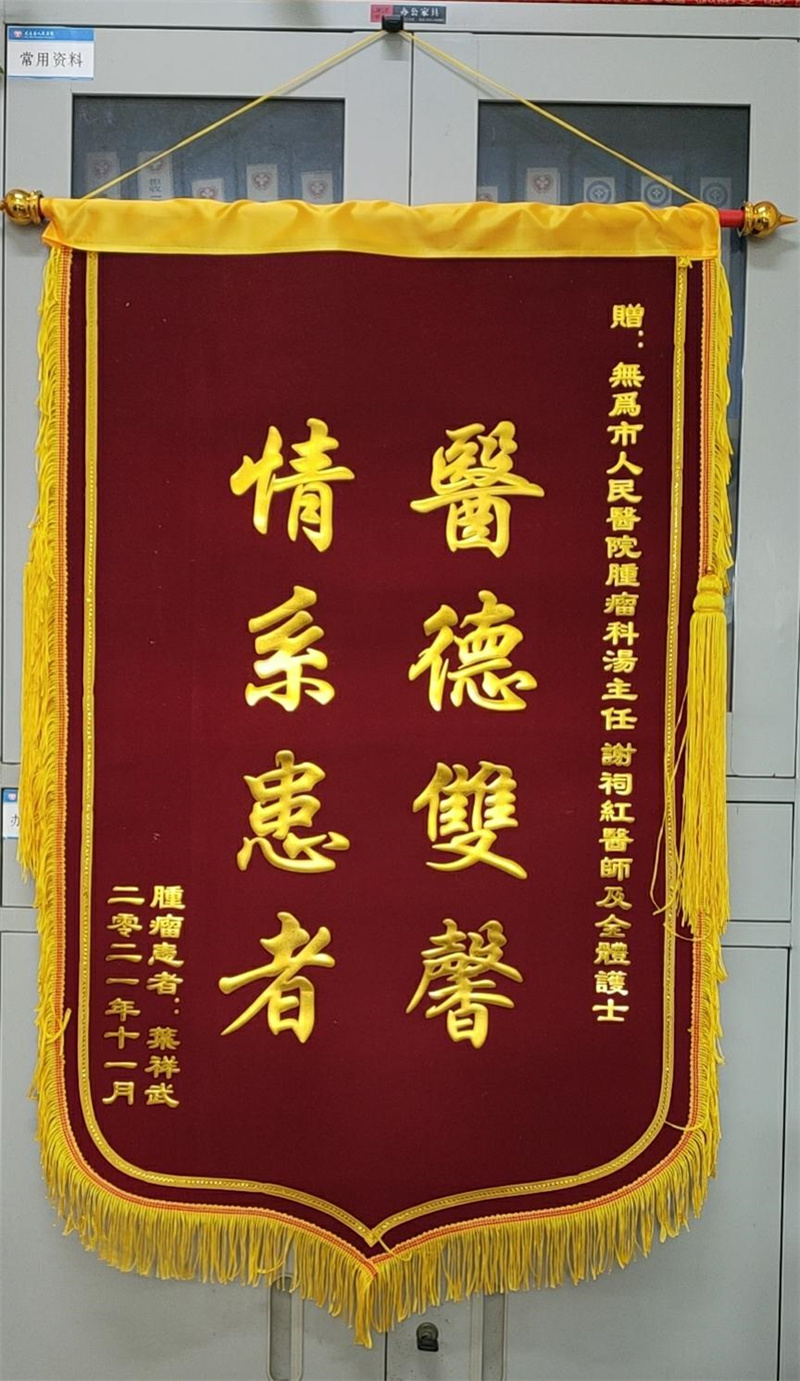 办公家具
常用资料
贈：無爲市人民醫院腫瘤科湯主任 謝祠紅醫師及全體護士
醫德雙馨
情系患者
腫瘤患者：葉祥武
二零二一年十一月